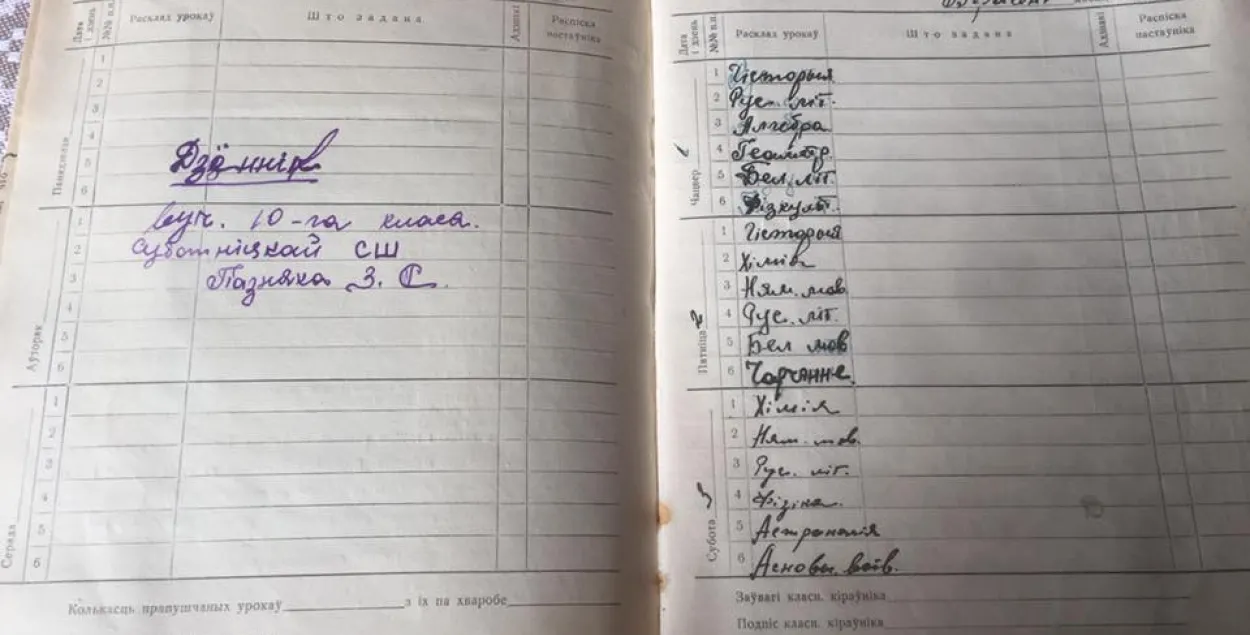 Дата і дзень
№№ п.п.
Расклад урокаў
Што задана
Адзнакі
Распіска настаўніка
Панядзелак
1
2
3
4
5
6
Дзённік
вуч. 10-га класа.
Суботніцкай СШ
Пазняка З. С.
Аўторак
1
2
3
4
5
6
Серада
1
2
3
4
5
6
Колькасць прапушчаных урокаў
з іх па хваробе
Дата і дзень
№№ п.п.
Расклад урокаў
Што задана
Адзнакі
Распіска настаўніка
Чацвер 1
1 Гісторыя
2 Рус. літ.
3 Алгебра
4 Геаметр.
5 Бел. літ.
6 Фізкульт.
Пятніца 2
1 Гісторыя
2 Хімія
3 Ням. мов.
4 Рус. літ.
5 Бел мов
6 Чарчэнне.
Субота 3
1 Хімія
2 Ням. мов.
3 Рус. літ.
4 Фізіка.
5 Астраномія
6 Асновы. воів.
Заўвагі класн. кіраўніка
Подпіс класн. кіраўніка